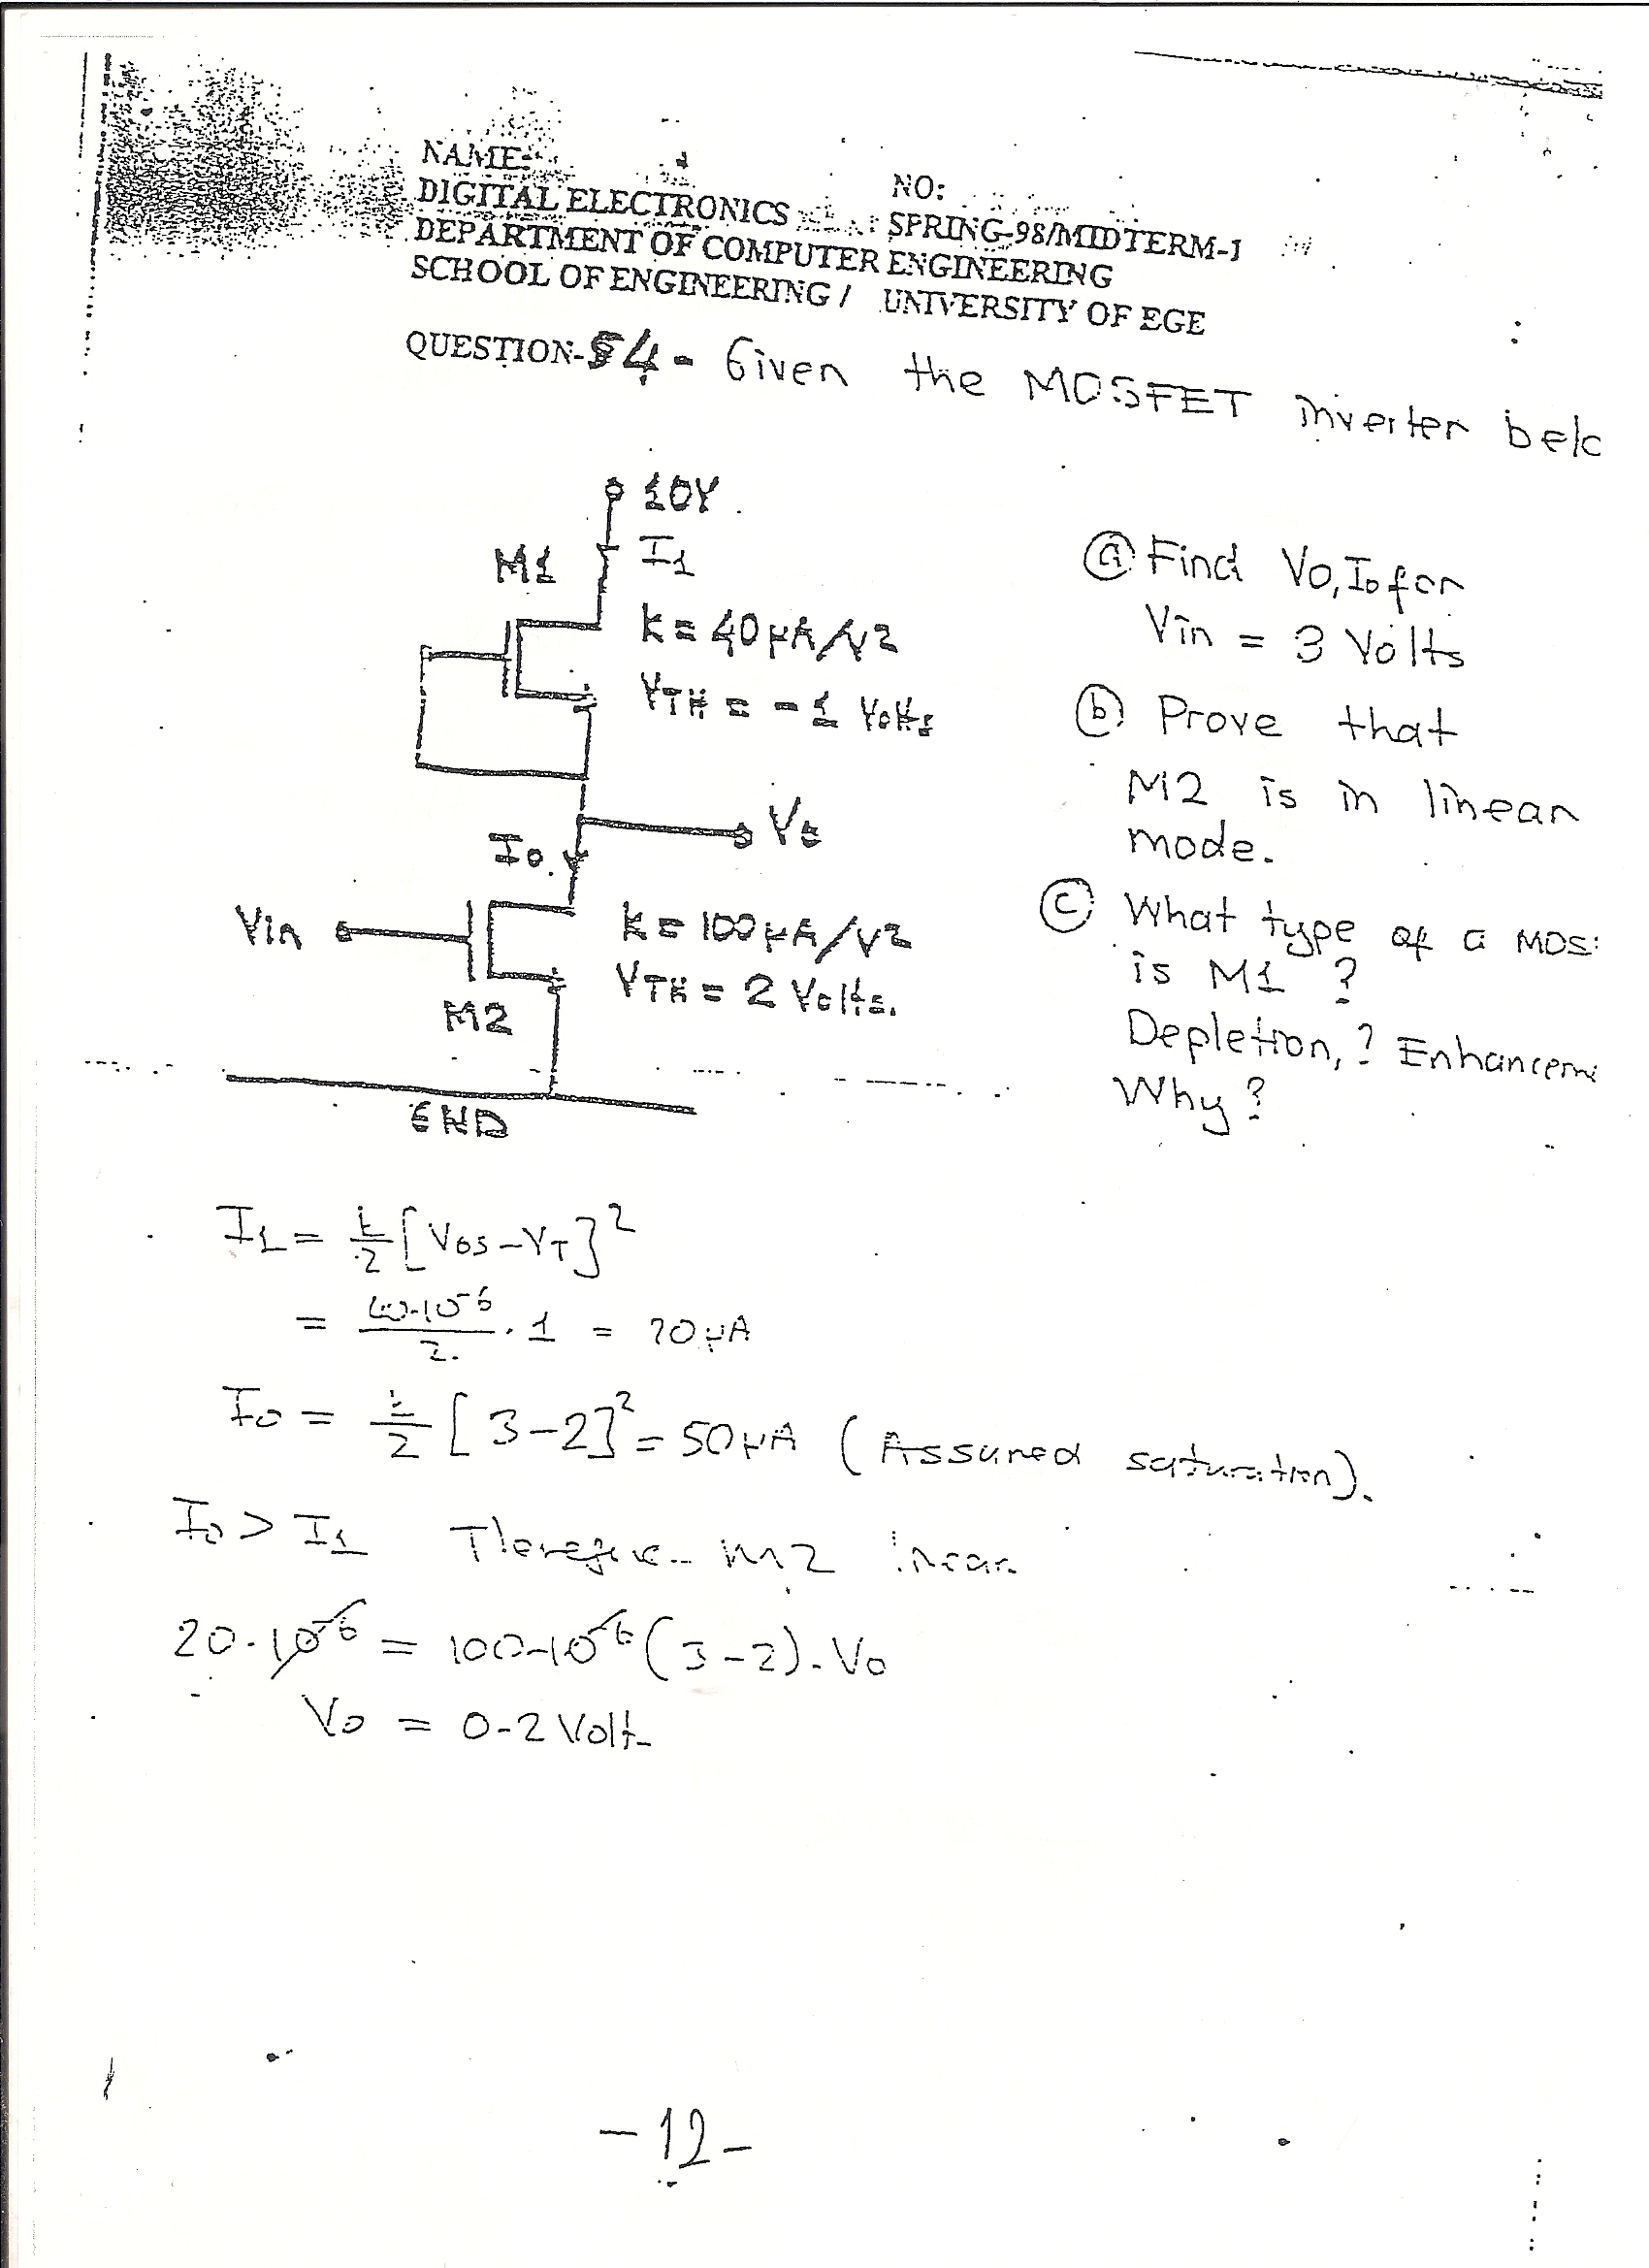 NAME:
NO:
DIGITAL ELECTRONICS SPRING-98/MIDTERM-1
DEPARTMENT OF COMPUTER ENGINEERING
SCHOOL OF ENGINEERING / UNIVERSITY OF EGE
QUESTION-54- Given the MOSFET inverter belo
10V
I1
M1
k = 40μA/V2
VTH = -1 Volts
Vo
Io
Vin
k = 100μA/V2
VTH = 2 Volts.
M2
GND
(a) Find Vo, Io for
Vin = 3 Volts
(b) Prove that
M2 is in linear
mode.
(c) What type of a MOS
is M1 ?
Depletion, ? Enhancem
Why?
I1 = k/2 [VGS - VT]2
= 40.10-6/2 . 1 = 20μA
Io = k/2 [3-2]2 = 50μA (Assumed saturation).
Io > I1 Therefore M2 linear
20.10-6 = 100.10-6 (3-2). Vo
Vo = 0.2 Volt
-12-